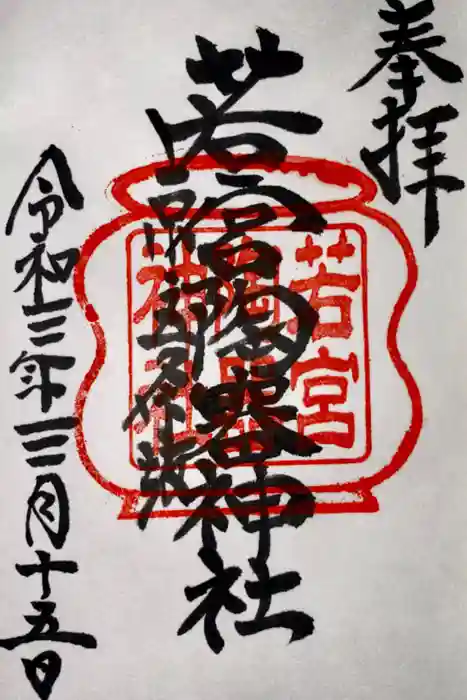 奉拝
若宮陶器神社
令和三年三月十五日
若宮
陶器
神社